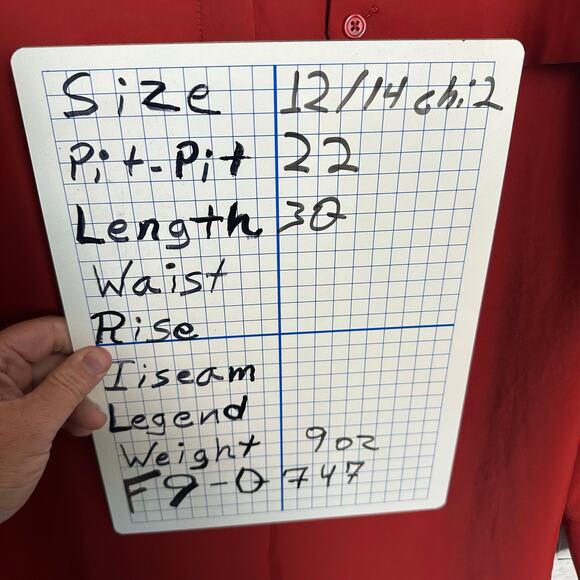 Size 12/14 chi2
Pit-Pit 22
Length 30
Waist
Rise
Iiseam
Legend
Weight 9oz
F9-0747